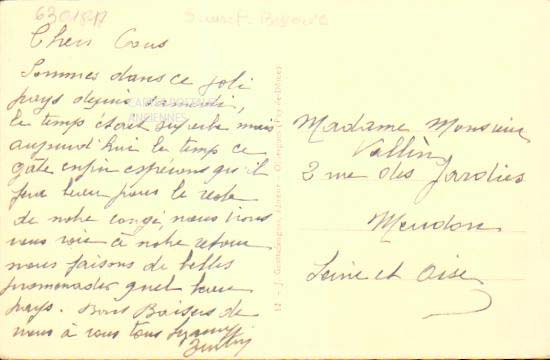 6301812
Cher Tous
Sommes dans ce joli
pays depuis samedi,
le temps était superbe mais
aujourd'hui le temps ce
gâte enfin espérons qu'il
fera beau pour le reste
de notre congé, nous irons
vous voir à notre retour
nous faisons de belles
promenades quel beau
pays. Bons Baisers de
nous à vous tous
CARTES POSTALES
ANCIENNES
Madame Monsieur
Vallin
2 rue des Jardies
Meudon
Seine et Oise